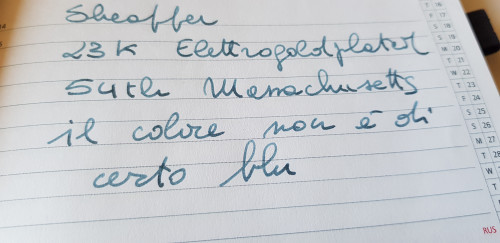 Sheaffer
23K Elettrogoldplated
54th Massachusetts
il colore non è di
certo blu
T 16
F 17
S 18
S 19
M 20
T 21
W 22
T 23
F 24
S 25
S 26
M 27
T 28
W
T
RUS